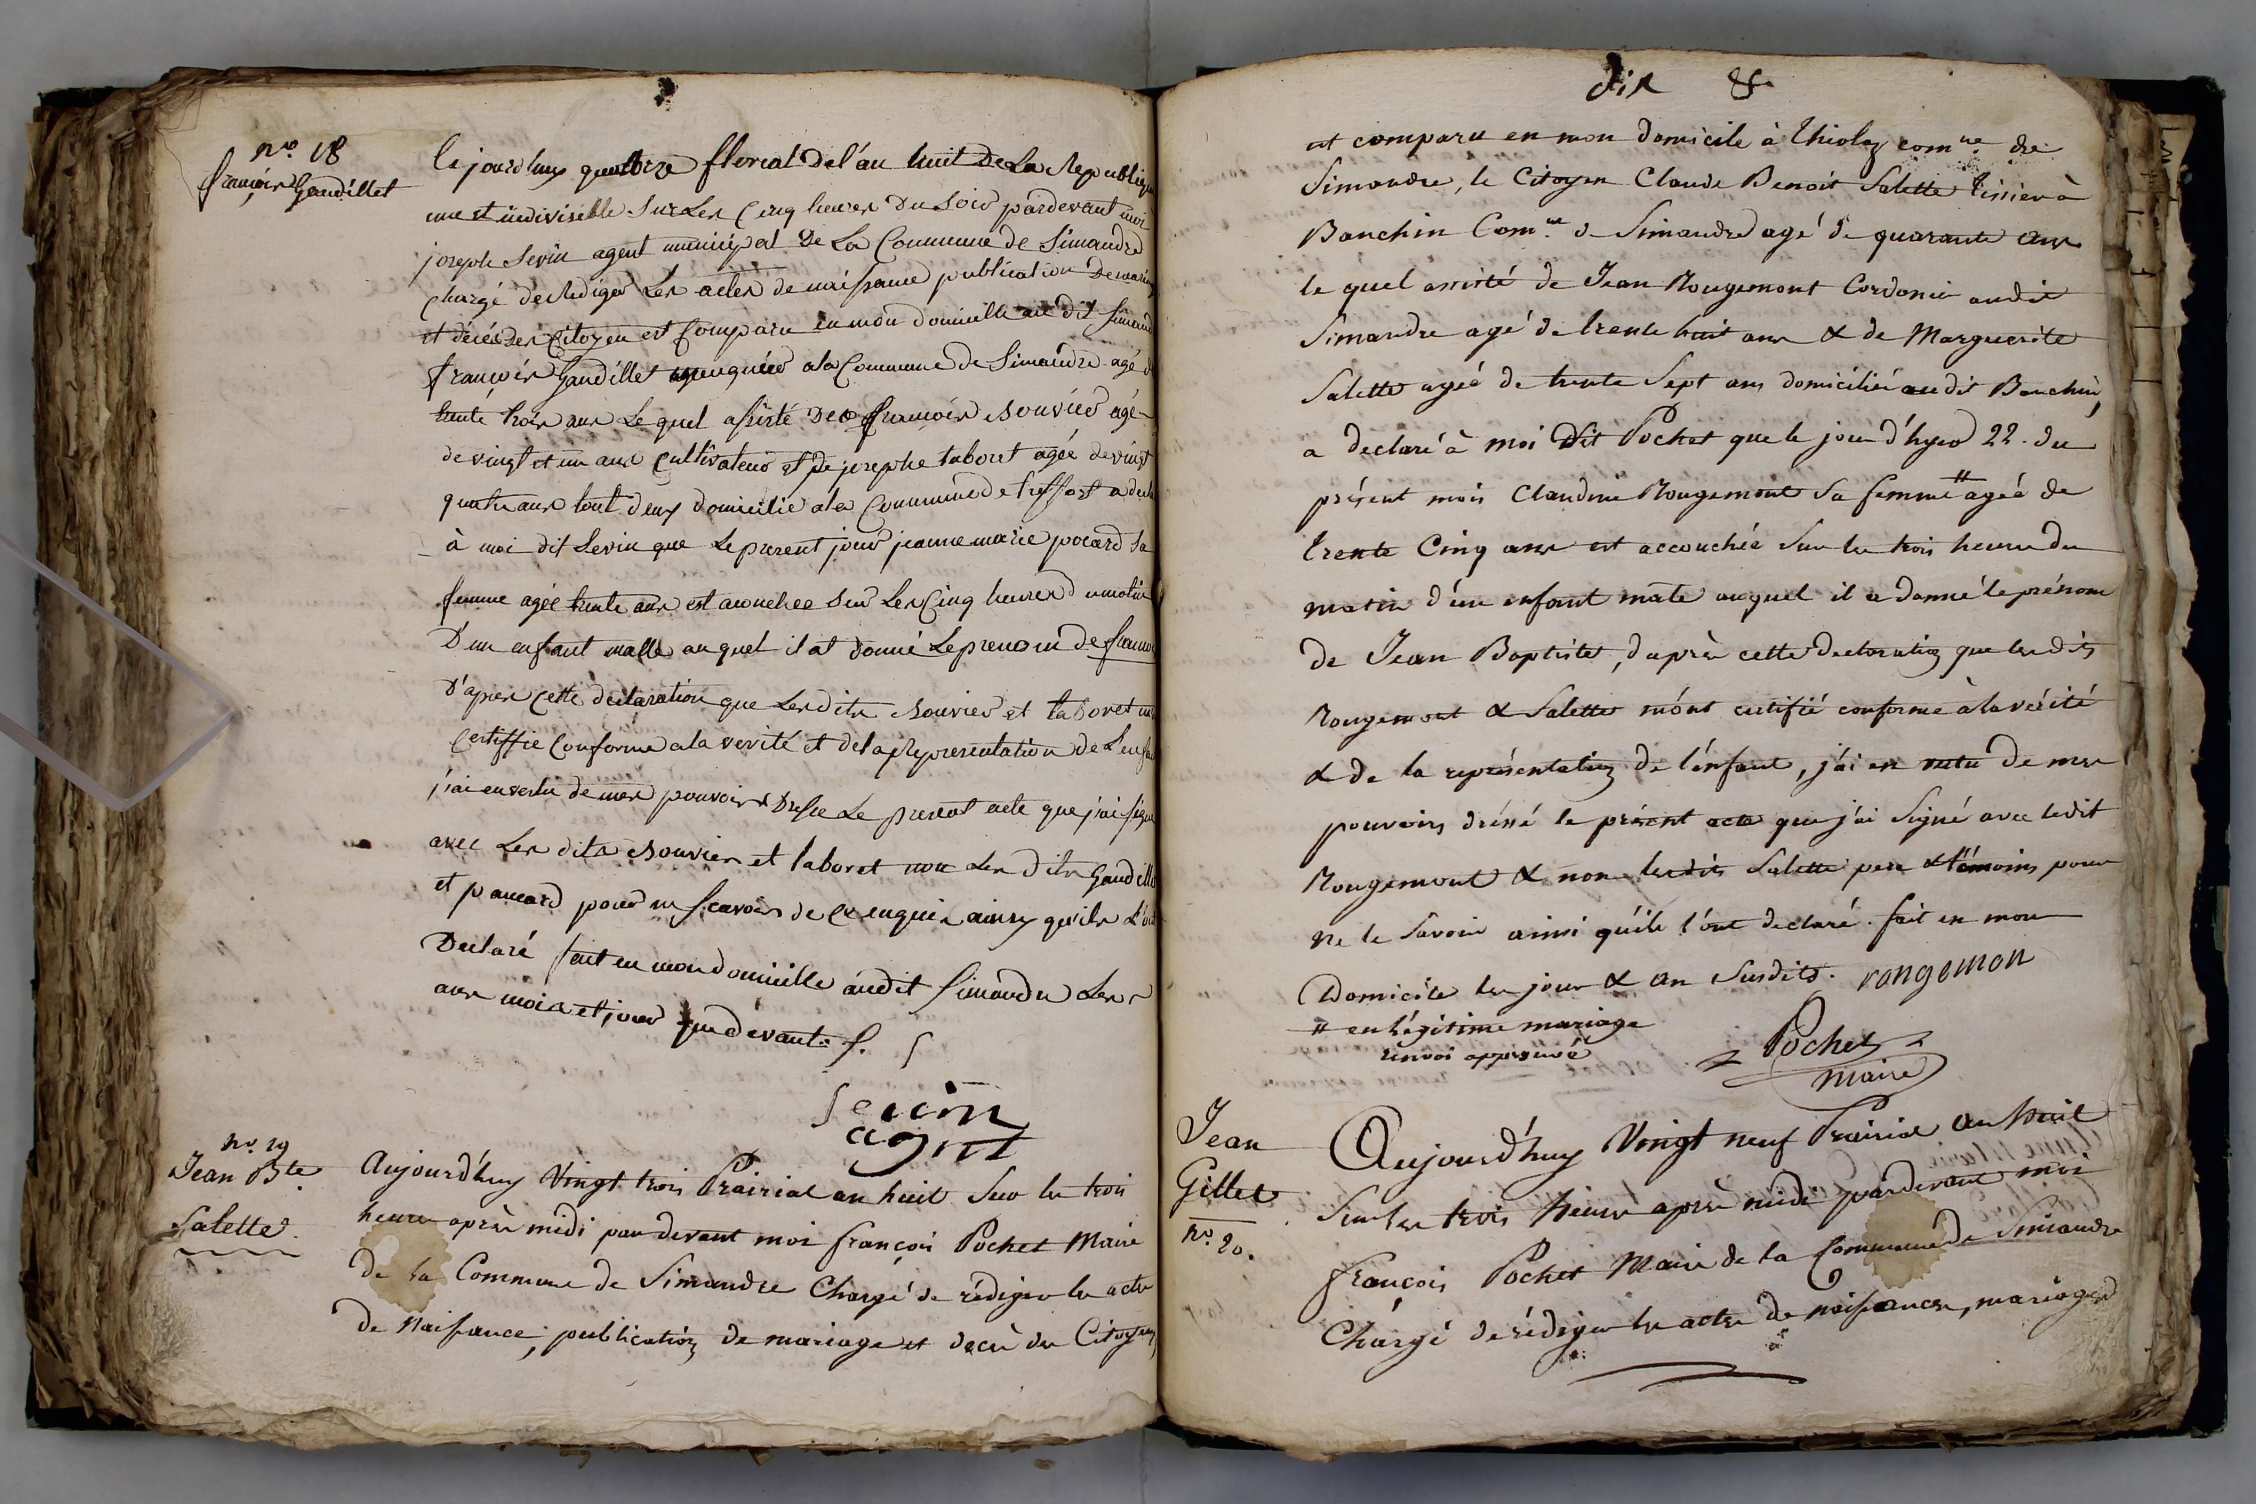 nº. 18
françois Gaudillet
Ce jourd'huy quatorze floreal de l'an huit De La Republique
une et indivisible sur Les Cinq heures Du Soir pardevant moi
joseph Sevin agent municipal De La Commune de Simandre
Chargé de Rediger Les actes de naissance publication De mariage
et décés des Citoyen est Comparu en mon domicille au dit Simandre
françois Gaudillet a la Commune de Simandre agé de
trente trois ans Le quel assisté De françois Bouvier agé
de vingt et un ans Cultivateur et De josephe taboret agée de vingt
quatre ans tout deux domicilié a la Commune de treffort a decla
à moi dit Sevin que Le present jour jeanne marie pocard Sa
femme agée trente ans est acouchee Sur Les Cinq heures du matin
D'un enfant malle au quel il at donné Le prenom de françois
D'apres Cette declaration que Les dits Bouvier et taboret mon
Certiffie Conforme a la verité et de la Representation de L'enfan
j'ai en vertu de mes pouvoirs Dresse Le present acte que j'ai signe
avec Les dits Bouvier et taboret non Les dits Gaudillet
et pocard pour ne scavoir de ce enquis ainsy qu'ils L'on
Declaré fait en mon domicille audit Simandre Les
ans mois et jour que devant. S.
Sevin
agent
nº. 19
Jean Bte.
Salette.
Aujourd'huy Vingt trois Prairial an huit Sur les trois
heures après midi par devant moi françois Pochet Maire
de la Commune de Simandre Chargé de rédiger les actes
de Naissance, publication de mariage et decès des Citoyens,
dix
est comparu en mon domicile à Thioley comne. de
Simandre, le Citoyen Claude Benoit Salette tissier à
Banchin Comne. de Simandre agé de quarante ans
le quel assisté de Jean Rougemont Cordonier audit
Simandre agé de trente huit ans & de Marguerite
Salette agée de trente Sept ans domiciliée audit Banchin,
a declaré à moi dit Pochet que le jour d'hyer 22. du
présent mois Claudine Rougemont Sa femme # agée de
trente Cinq ans est accouchée Sur les trois heures du
matin d'un enfant mâle auquel il a donné le prénom
de Jean Baptiste, d'après cette declaration que les dits
Rougemont & Salette m'ont certifié conforme à la vérité
& de la représentation de l'enfant, j'ai en vertu de mes
pouvoirs dréssé le présent acte que j'ai Signé avec ledit
Rougemont & non les dits Salette pere & témoins pour
ne le Savoir ainsi qu'ils l'ont declaré. fait en mon
Domicile les jour & an Susdits. rongemon
# en légitime mariage
renvoi approuvé
Pochet
maire
Jean
Gillet
nº. 20.
Aujourd'huy Vingt neuf Prairial an huit
Sur les trois heures après midi pardevant moi
françois Pochet Maire de la Commune de Simandre
Chargé de rédiger les actes de naissances, mariages